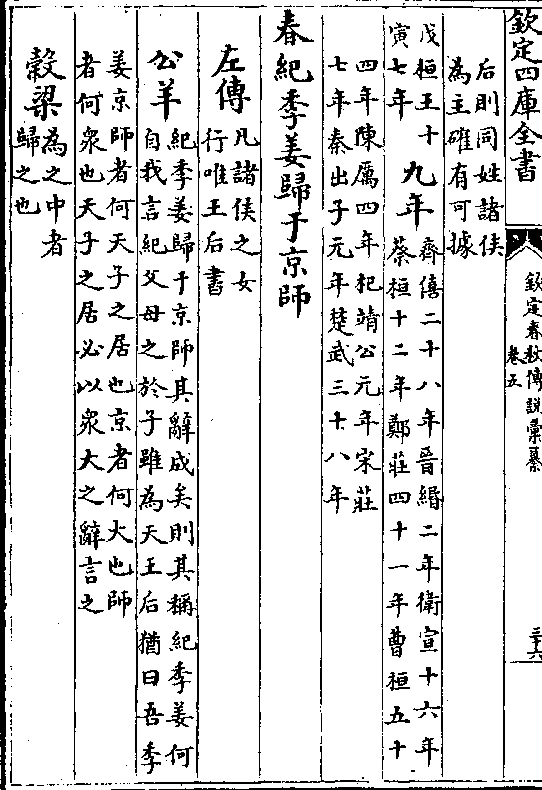 欽定四庫全書
欽定春秋傳說彙纂
卷五
三十六
后則同姓諸侯
為主確有可據
戊桓王十
寅七年
九年
齊僖二十八年晉緡二年衛宣十六年
蔡桓十二年鄭莊四十一年曹桓五十
四年陳厲四年杞靖公元年宋莊
七年秦出子元年楚武三十八年
春紀季姜歸于京師
左傳
凡諸侯之女
行唯王后書
公羊
紀季姜歸于京師其辭成矣則其稱紀季姜何
自我言紀父母之於子雖為天王后猶曰吾季
姜京師者何天子之居也京者何大也師
者何眾也天子之居必以眾大之辭言之
穀梁
為之中者
歸之也